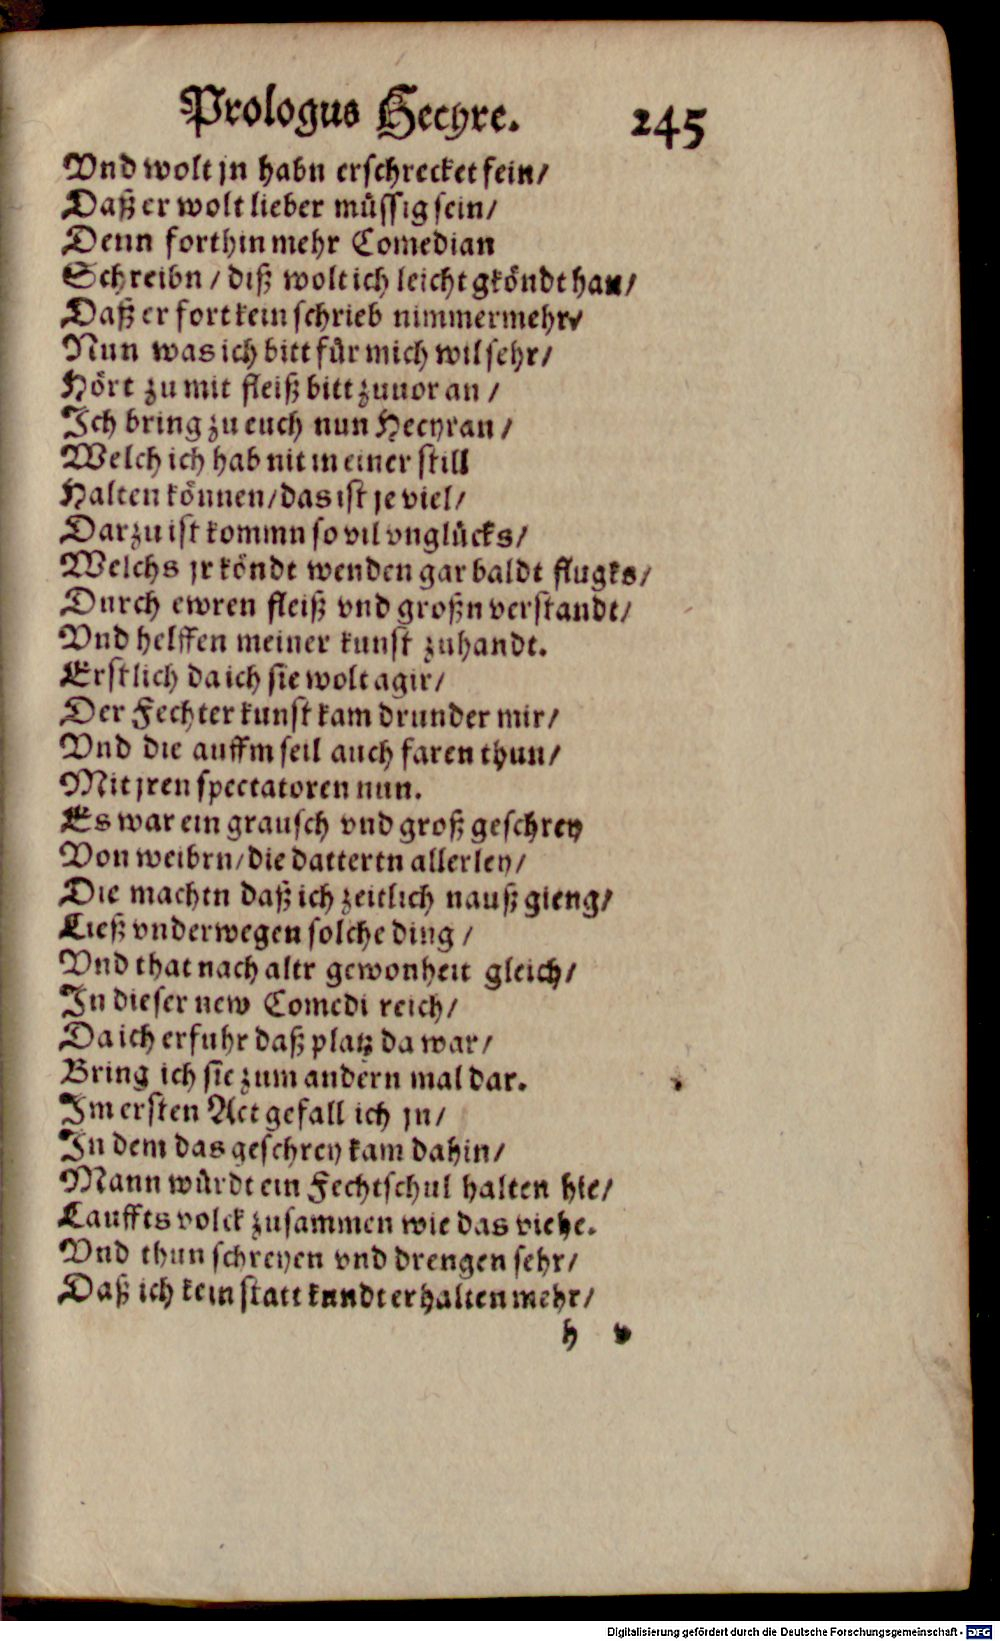 Prologus Hecyre. 245
Vnd wolt jn habn erschrecket fein/
Daß er wolt lieber müssig sein/
Denn forthin mehr Comedian
Schreibn / diß wolt ich leicht gköndt han/
Daß er fort kein schrieb nimmermehr/
Nun was ich bitt für mich wil sehr/
Hört zu mit fleiß bitt zuuor an /
Ich bring zu euch nun Hecyran /
Welch ich hab nit in einer still
Halten können/ das ist je viel/
Darzu ist kommn so vil vnglücks/
Welchs jr köndt wenden gar baldt flugks/
Durch ewren fleiß vnd großn verstandt/
Vnd helffen meiner kunst zuhandt.
Erstlich da ich sie wolt agir/
Der Fechter kunst kam drunder mir/
Vnd die auffm seil auch faren thun/
Mit jren spectatoren nun.
Es war ein grausch vnd groß geschrey
Von weibrn/ die dattertn allerley/
Die machtn daß ich zeitlich nauß gieng/
Ließ vnderwegen solche ding /
Vnd that nach altr gewonheit gleich/
In dieser new Comedi reich/
Da ich erfuhr daß platz da war/
Bring ich sie zum andern mal dar.
Im ersten Act gefall ich jn/
In dem das geschrey kam dahin/
Mann würdt ein Fechtschul halten hie/
Lauffts volck zusammen wie das viehe.
Vnd thun schreyen vnd drengen sehr/
Daß ich kein statt kundt erhalten mehr/
h v
Digitalisierung gefördert durch die Deutsche Forschungsgemeinschaft - DFG